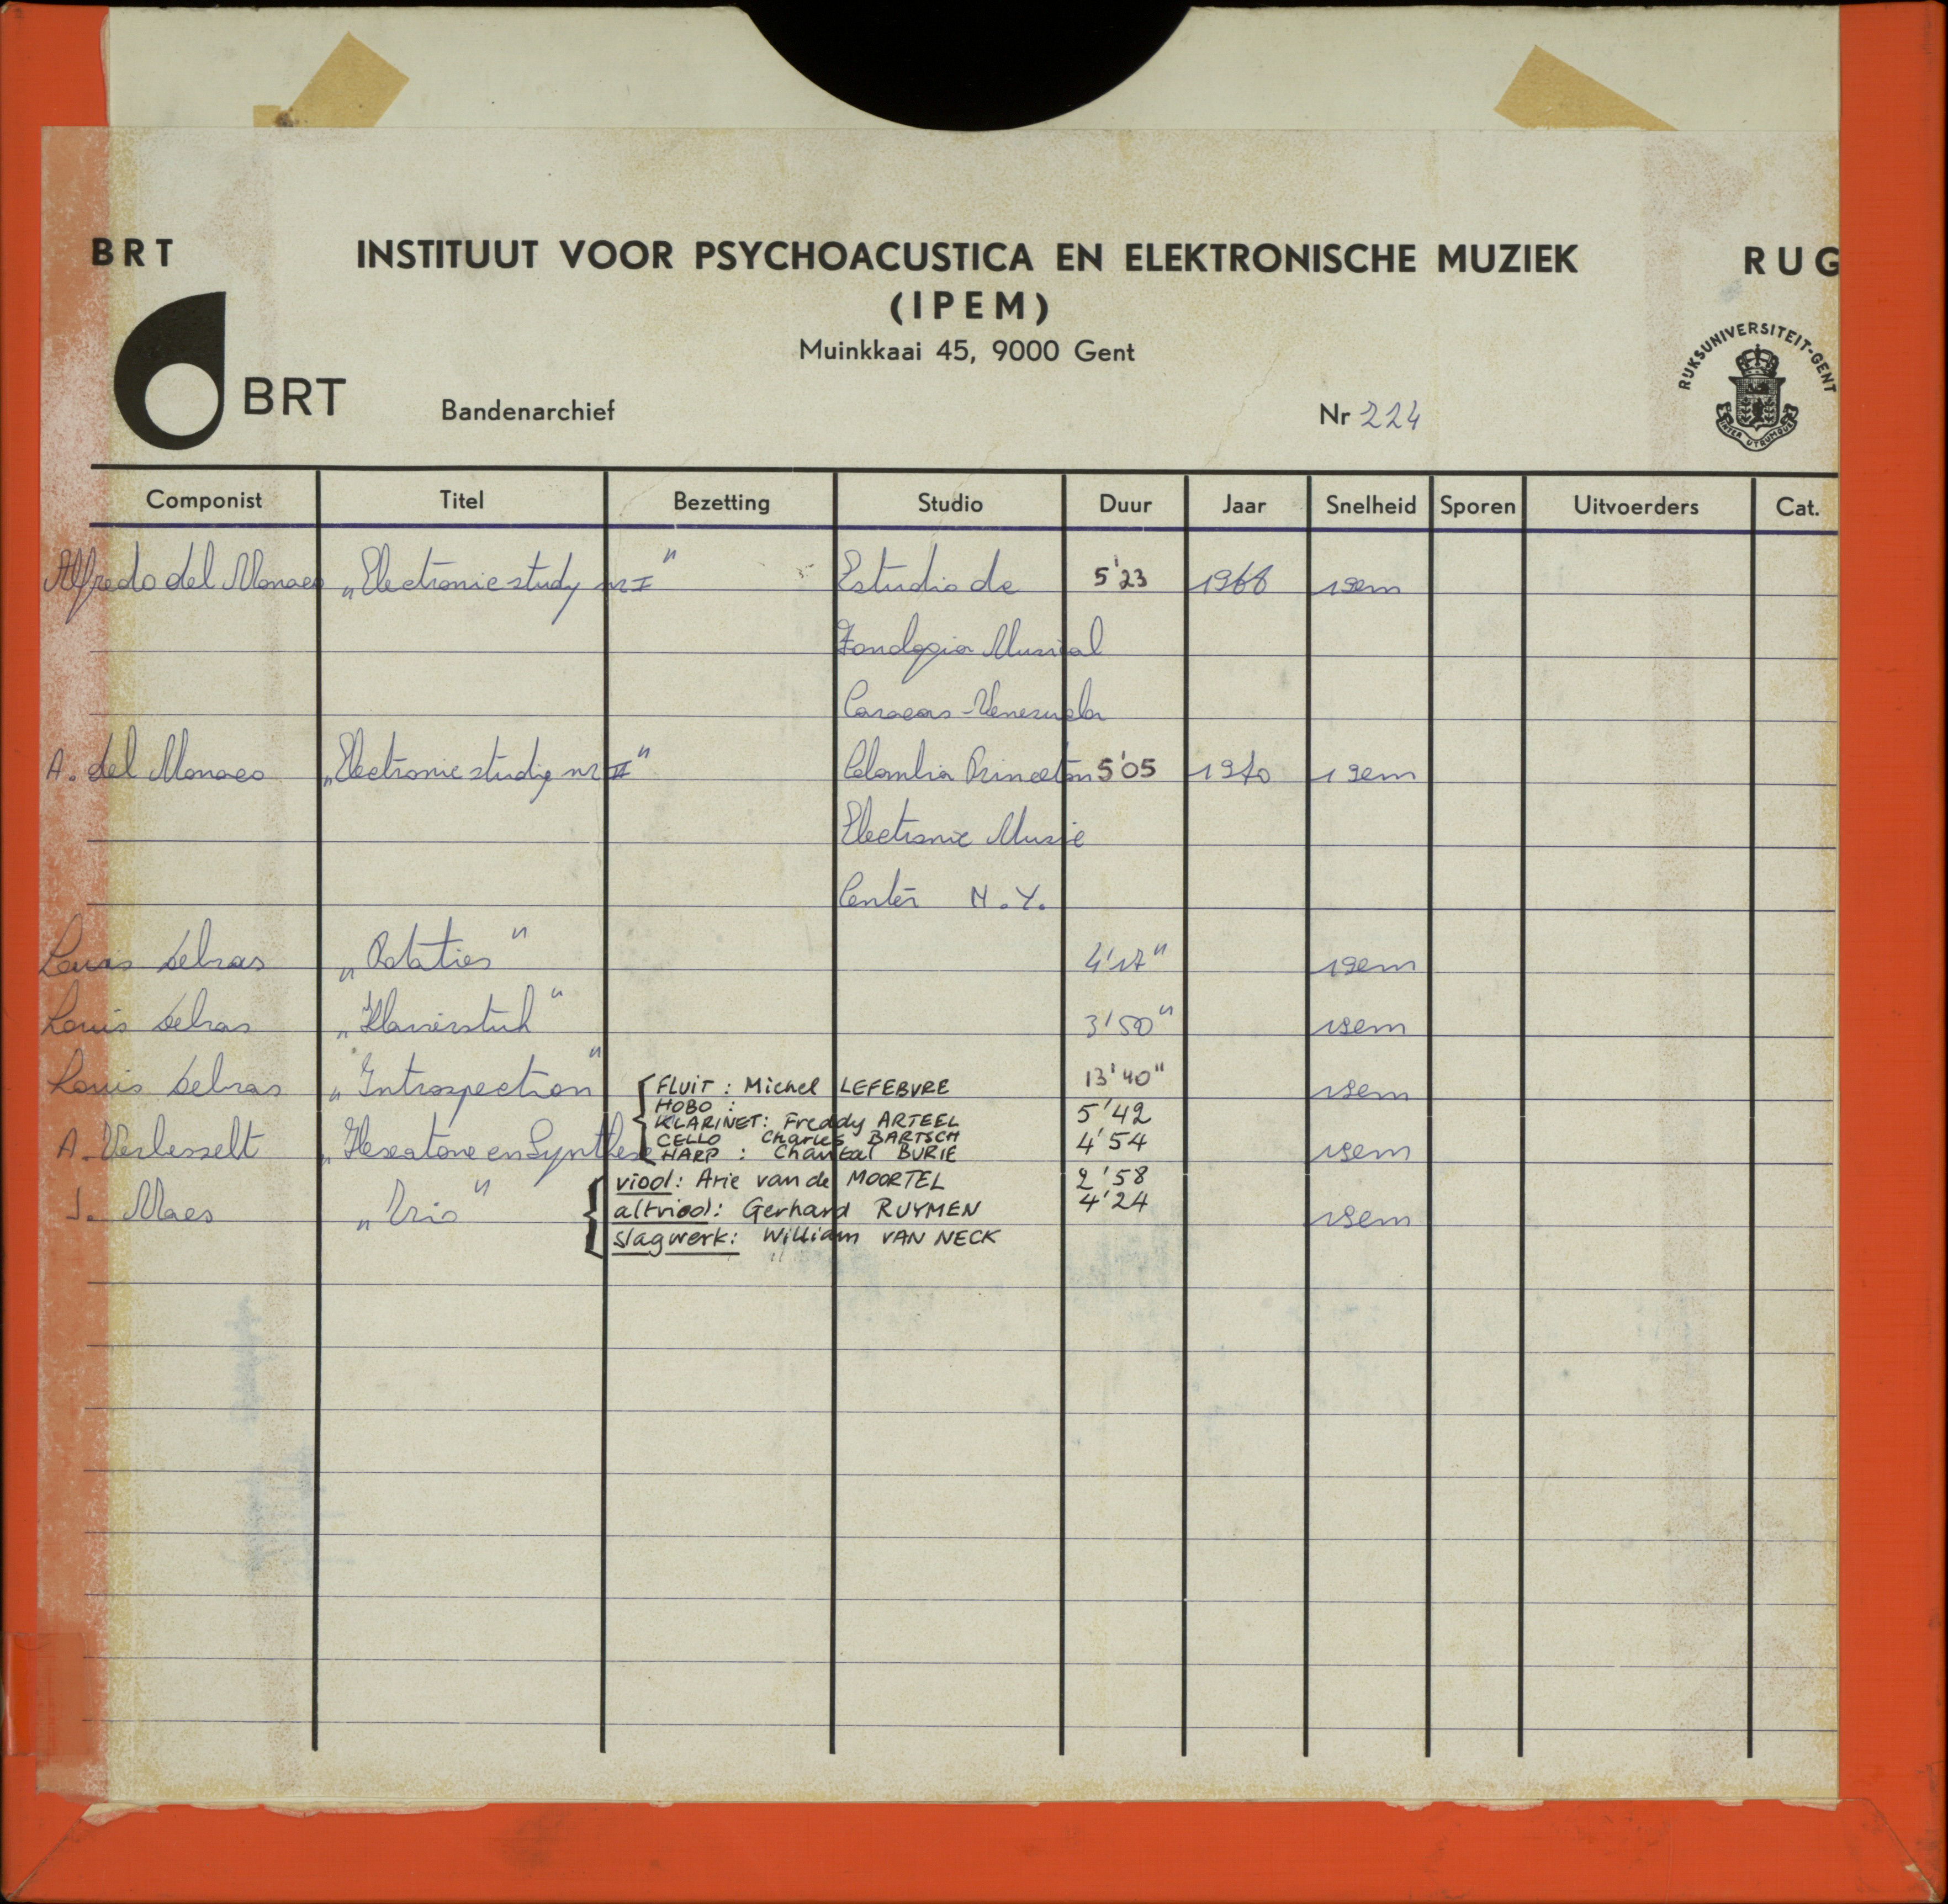 BRT INSTITUUT VOOR PSYCHOACUSTICA EN ELEKTRONISCHE MUZIEK RUG
(IPEM)
Muinkkaai 45, 9000 Gent
RIJKSUNIVERSITEIT-GENT
INTER UTRUMQUE
BRT Bandenarchief Nr 224
Componist Titel Bezetting Studio Duur Jaar Snelheid Sporen Uitvoerders Cat.
Alfredo del Monaco „Electronic study nr I" Estudio de 5'23 1968 19cm
Fonologia Musical
Caracas - Venezuela
A. del Monaco „Electronic study nr II" Columbia Princeton 5'05 1970 19cm
Electronic Music
Center N.Y.
Louis de bras „Rotaties" 4'17" 19cm
Louis de bras „Klavierstuk" 3'50" 19cm
Louis de bras „Introspection" 13'40" 19cm
FLUIT : Michel LEFEBVRE
HOBO :
KLARINET: Freddy ARTEEL 5'42
CELLO Charles BARTSCH
A. Verbesselt „Hexatone en Synthese HARP : Chantal BURIE 4'54 19cm
viool: Arie van de MOORTEL 2'58
J. Maes „Trio" altviool: Gerhard RUYMEN 4'24 19cm
slagwerk: William VAN NECK